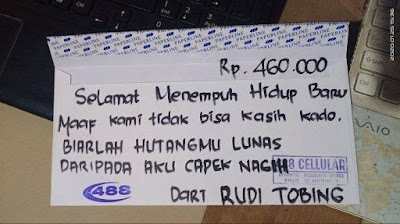 PAPERLINE
Rp. 460.000
Selamat Menempuh Hidup Baru
Maaf kami tidak bisa kasih kado.
BIARLAH HUTANGMU LUNAS
DARIPADA AKU CAPEK NAGIH
488 CELLULAR
488
DARI RUDI TOBING
VAIO